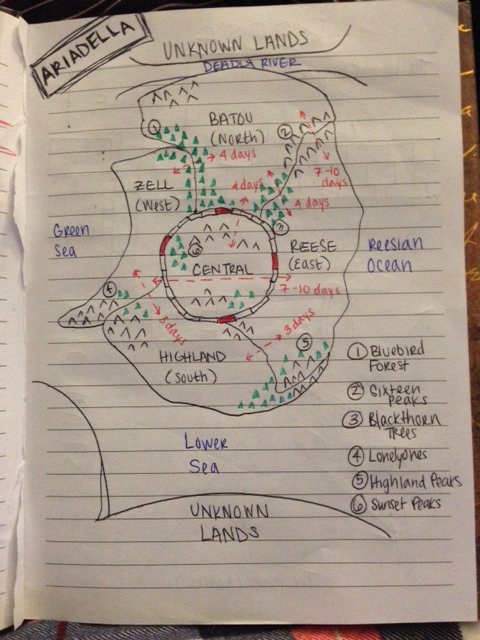 ARIADELLA
UNKNOWN LANDS
DEADLY RIVER
BATOU
(North)
1
2
4 days
7-10
days
ZELL
(West)
4 days
4 days
3
Green
Sea
6
CENTRAL
REESE
(East)
Reesian
Ocean
7-10 days
4
3 days
3 days
5
HIGHLAND
(South)
1 Bluebird
Forest
2 Sixteen
Peaks
3 Blackthorn
Trees
4 Lonelyones
5 Highland Peaks
6 Sunset Peaks
Lower
Sea
UNKNOWN
LANDS